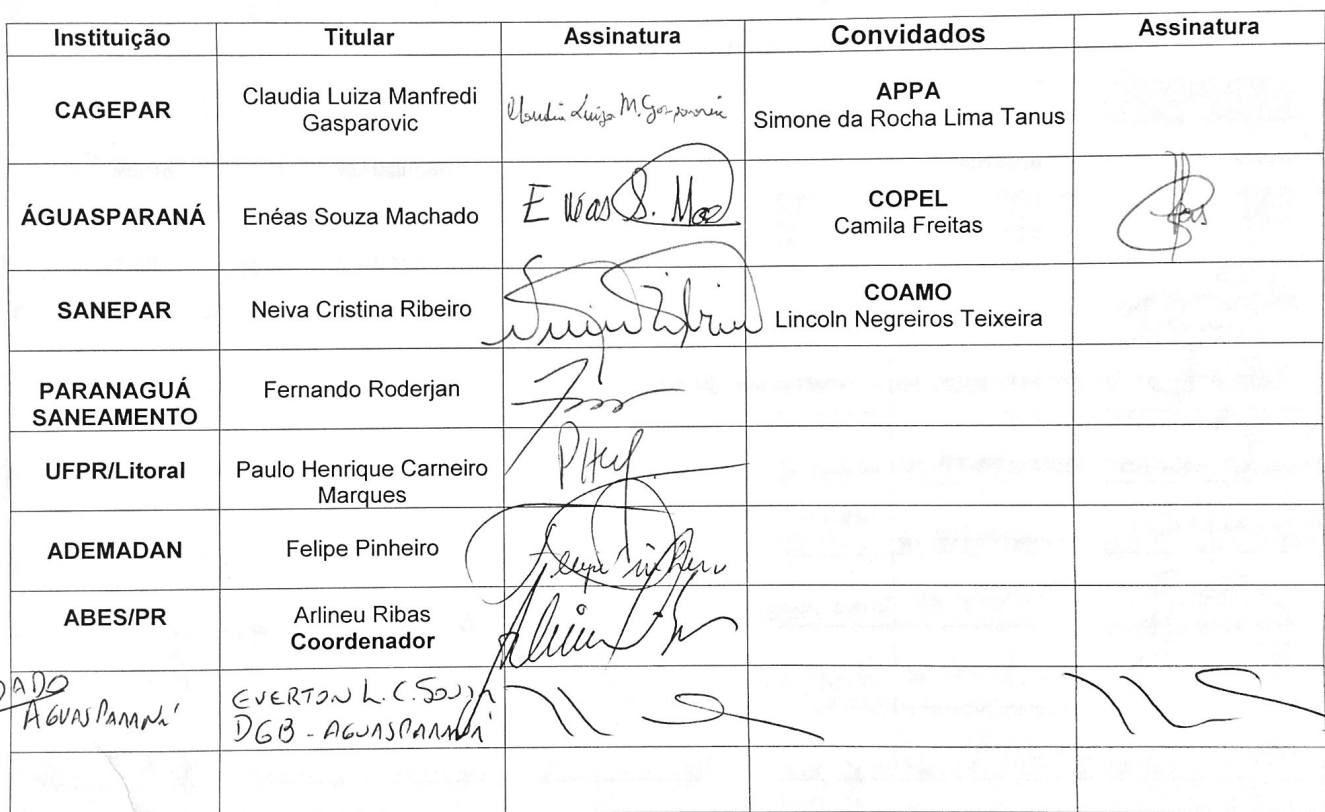 Instituição Titular Assinatura Convidados Assinatura
CAGEPAR
Claudia Luiza Manfredi
Gasparovic
Claudia Luiza M. Gasparovic
APPA
Simone da Rocha Lima Tanus
ÁGUASPARANÁ
Enéas Souza Machado
Enéas S. Mac
COPEL
Camila Freitas
SANEPAR
Neiva Cristina Ribeiro
COAMO
Lincoln Negreiros Teixeira
PARANAGUÁ
SANEAMENTO
Fernando Roderjan
UFPR/Litoral
Paulo Henrique Carneiro
Marques
ADEMADAN
Felipe Pinheiro
Felipe Pinheiro
ABES/PR
Arlineu Ribas
Coordenador
DADO
AGUASPARANÁ
EVERTON L. C. SOUZA
DGB - AGUASPARANÁ